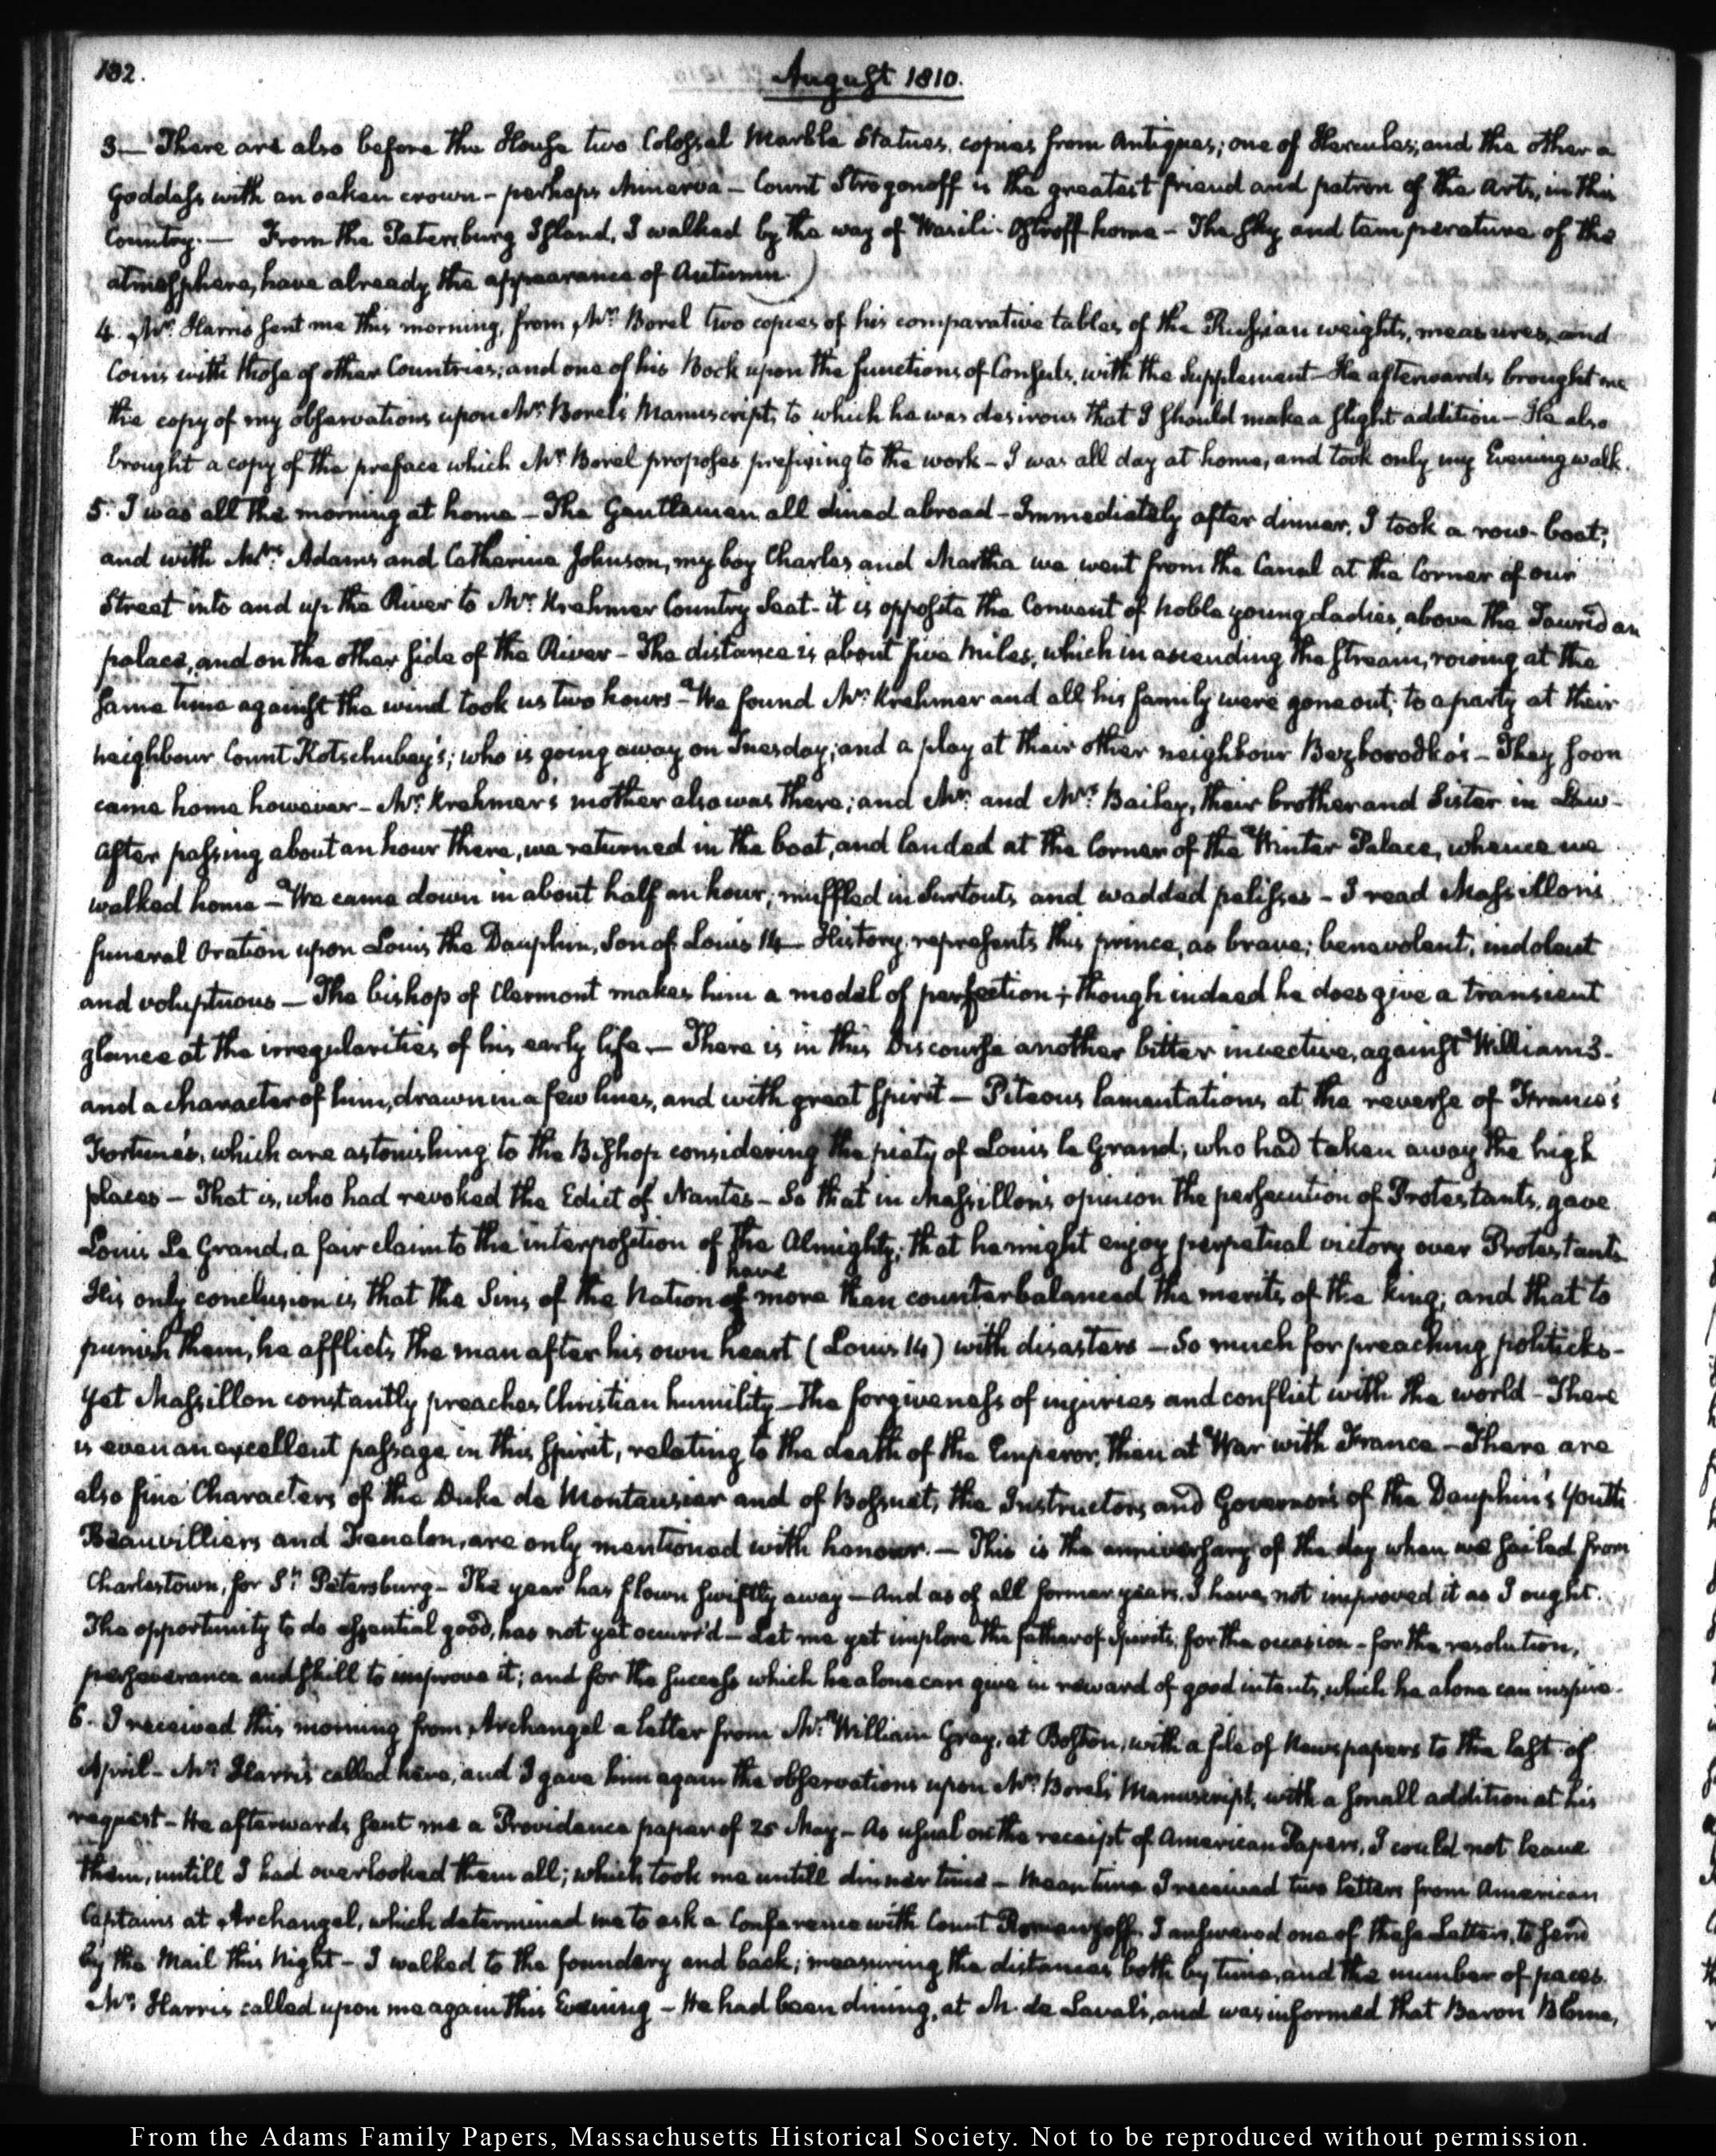 182.
August 1810.
3— There are also before the House two Colossal Marble Statues, copies from Antiques; one of Hercules; and the other a
Goddess with an oaken crown – perhaps Minerva – Count Strogonoff is the greatest friend and patron of the Arts, in this
Country. — From the Petersburg Island, I walked by the way of Wasili-Ostroff home – The sky and temperature of the
atmosphere, have already the appearance of Autumn.
4. Mr. Harris sent me this morning, from Mr. Borel two copies of his comparative tables of the Russian weights, measures, and
Coins with those of other Countries; and one of his Book upon the functions of Consuls, with the Supplement – He afterwards brought me
the copy of my observations upon Mr. Borel's Manuscript, to which he was desirous that I should make a slight addition – He also
brought a copy of the preface which Mr. Borel proposes prefixing to the work – I was all day at home, and took only my Evening walk.
5. I was all the morning at home – The Gentlemen all dined abroad – Immediately after dinner, I took a row-boat;
and with Mrs. Adams and Catherine Johnson, my boy Charles and Martha we went from the Canal at the Corner of our
Street into and up the River to Mr. Krehmer Country Seat – it is opposite the Convent of noble young Ladies, above the Tauridan
palace, and on the other side of the River – The distance is about five miles, which in ascending the stream, rowing at the
same time against the wind took us two hours – We found Mr. Krehmer and all his family were gone out; to a party at their
neighbour Count Kotschubey's; who is going away on Tuesday; and a play at their other neighbour Bezborodko's – They soon
came home however – Mr. Krehmer's mother also was there; and Mr. and Mrs. Bailey, their brother and Sister in Law –
After passing about an hour there, we returned in the boat, and landed at the Corner of the Winter Palace, whence we
walked home – We came down in about half an hour, muffled in Surtouts and wadded pelisses – I read Massillon's
funeral Oration upon Louis the Dauphin, Son of Louis 14 — History represents this prince, as brave; benevolent, indolent
and voluptuous — The bishop of Clermont makes him a model of perfection; though indeed he does give a transient
glance at the irregularities of his early life. — There is in this Discourse another bitter invective, against William 3.
and a character of him, drawn in a few lines, and with great Spirit — Piteous lamentations at the reverse of France's
Fortunes, which are astonishing to the Bishop considering the piety of Louis le Grand; who had taken away the high
places – That is, who had revoked the Edict of Nantes – So that in Massillon's opinion the persecution of Protestants, gave
Louis Le Grand, a fair claim to the interposition of the Almighty; that he might enjoy perpetual victory over Protestants
have
His only conclusion is that the Sins of the Nation of more than counterbalanced the merits of the king; and that to
punish them, he afflicts the man after his own heart (Louis 14) with disasters — So much for preaching politicks –
Yet Massillon constantly preaches Christian humility – the forgiveness of injuries and conflict with the world – There
is even an excellent passage in this Spirit, relating to the death of the Emperor, then at War with France – There are
also fine Characters of the Duke de Montausier and of Bossuet, the Instructors and Governors of the Dauphin's Youth
Beauvilliers and Fenelon, are only mentioned with honour. — This is the anniversary of the day when we sailed from
Charlestown, for St. Petersburg – The year has flown swiftly away – And as of all former years, I have not improved it as I ought.
The opportunity to do essential good, has not yet occurr'd – Let me yet implore the father of Spirits, for the occasion – for the resolution,
perseverance and skill to improve it; and for the success which he alone can give in reward of good intents, which he alone can inspire.
6. I received this morning from Archangel a letter from Mr. William Gray, at Boston, with a file of Newspapers to the last of
April – Mr. Harris called here, and I gave him again the observations upon Mr. Borel's Manuscript, with a small addition at his
request – He afterwards sent me a Providence paper of 25 May – As usual on the receipt of American Papers, I could not leave
them, untill I had overlooked them all; which took me untill dinner time – Mean time I received two letters from American
Captains at Archangel, which determined me to ask a Conference with Count Romanzoff. I answered one of these Letters, to send
by the Mail this Night – I walked to the foundery and back; measuring the distances both by time, and the number of paces.
Mr. Harris called upon me again this Evening – He had been dining, at M. de Laval's, and was informed that Baron Blome,
From the Adams Family Papers, Massachusetts Historical Society. Not to be reproduced without permission.